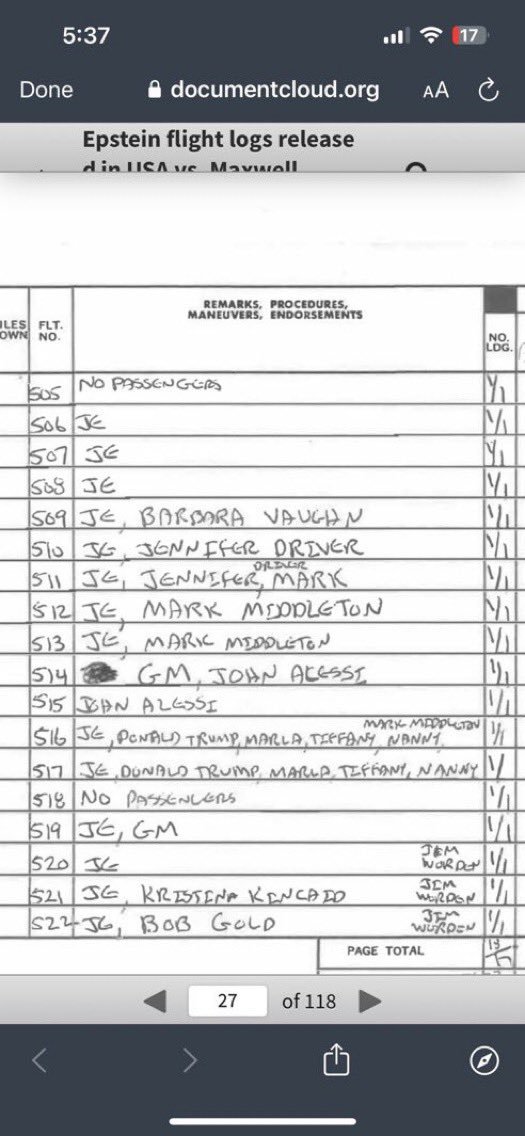 5:37
17
Done
documentcloud.org
AA
Epstein flight logs release
d in USA vs. Maxwell
ILES
OWN
FLT.
NO.
REMARKS, PROCEDURES,
MANEUVERS, ENDORSEMENTS
NO.
LDG.
505 NO PASSENGERS 1/1
506 JE 1/1
507 JE 1/1
508 JE 1/1
509 JE, BARBARA VAUGHN 1/1
510 JE, JENNIFER DRIVER 1/1
DRIVER
511 JE, JENNIFER, MARK 1/1
512 JE, MARK MIDDLETON 1/1
513 JE, MARK MIDDLETON 1/1
514 GM, JOHN ALESSI 1/1
515 JOHN ALESSI 1/1
MARK MIDDLETON
516 JE, DONALD TRUMP, MARLA, TIFFANY, NANNY, 1/1
517 JE, DONALD TRUMP, MARLA, TIFFANY, NANNY 1/
518 NO PASSENGERS 1/1
519 JE, GM 1/1
520 JE JIM WORDEN 1/1
521 JE, KRISTINA KINCAID JIM WORDEN 1/1
522 JE, BOB GOLD JIM WORDEN 1/1
PAGE TOTAL
27 of 118